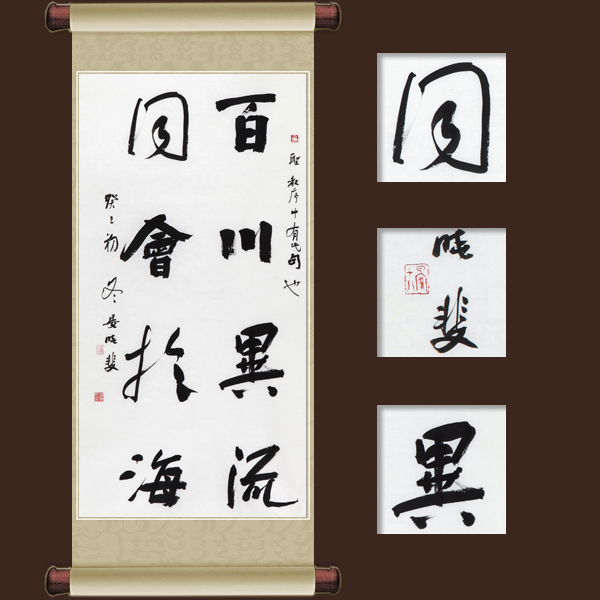 聖教序中有此句也
百川異流
同會於海
癸巳初冬
晓斐
同
晓斐
異